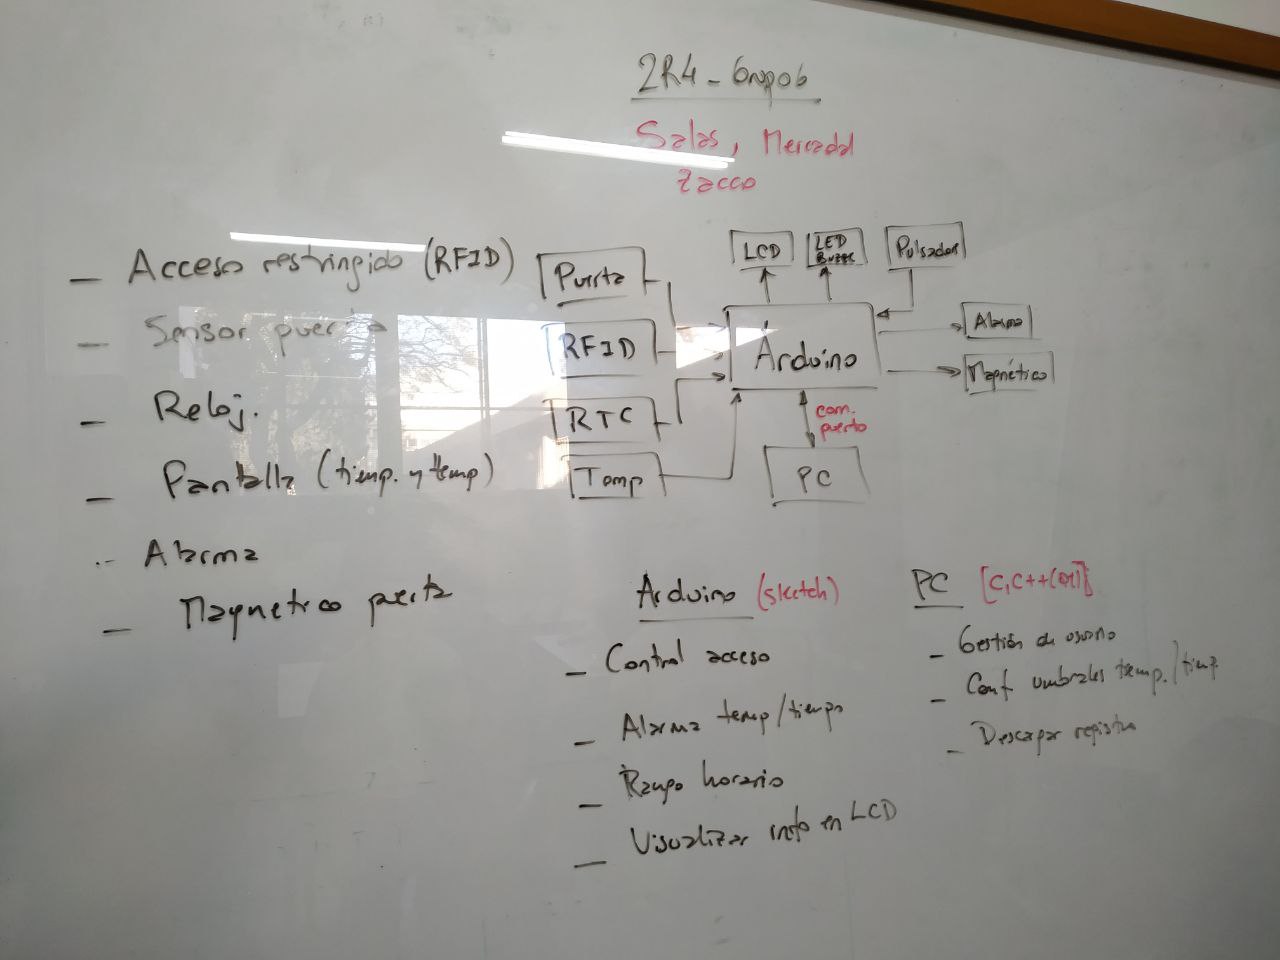 2R4 - Grupo 6
Salas, Mercadal
Zacco
- Acceso restringido (RFID)
- Sensor puerta
- Reloj.
- Pantalla (tiemp. y temp)
- Alarma
- Magnético puerta
Puerta
RFID
RTC
Temp
LCD
LED
Buzzer
Pulsador
Arduino
Alarma
Magnético
com.
puerto
PC
Arduino (sketch)
- Control acceso
- Alarma temp/tiempo
- Rango horario
- Visualizar info en LCD
PC [C, C++(Qt)]
- Gestión de usuario
- Conf umbrales temp./tiemp.
- Descargar registro